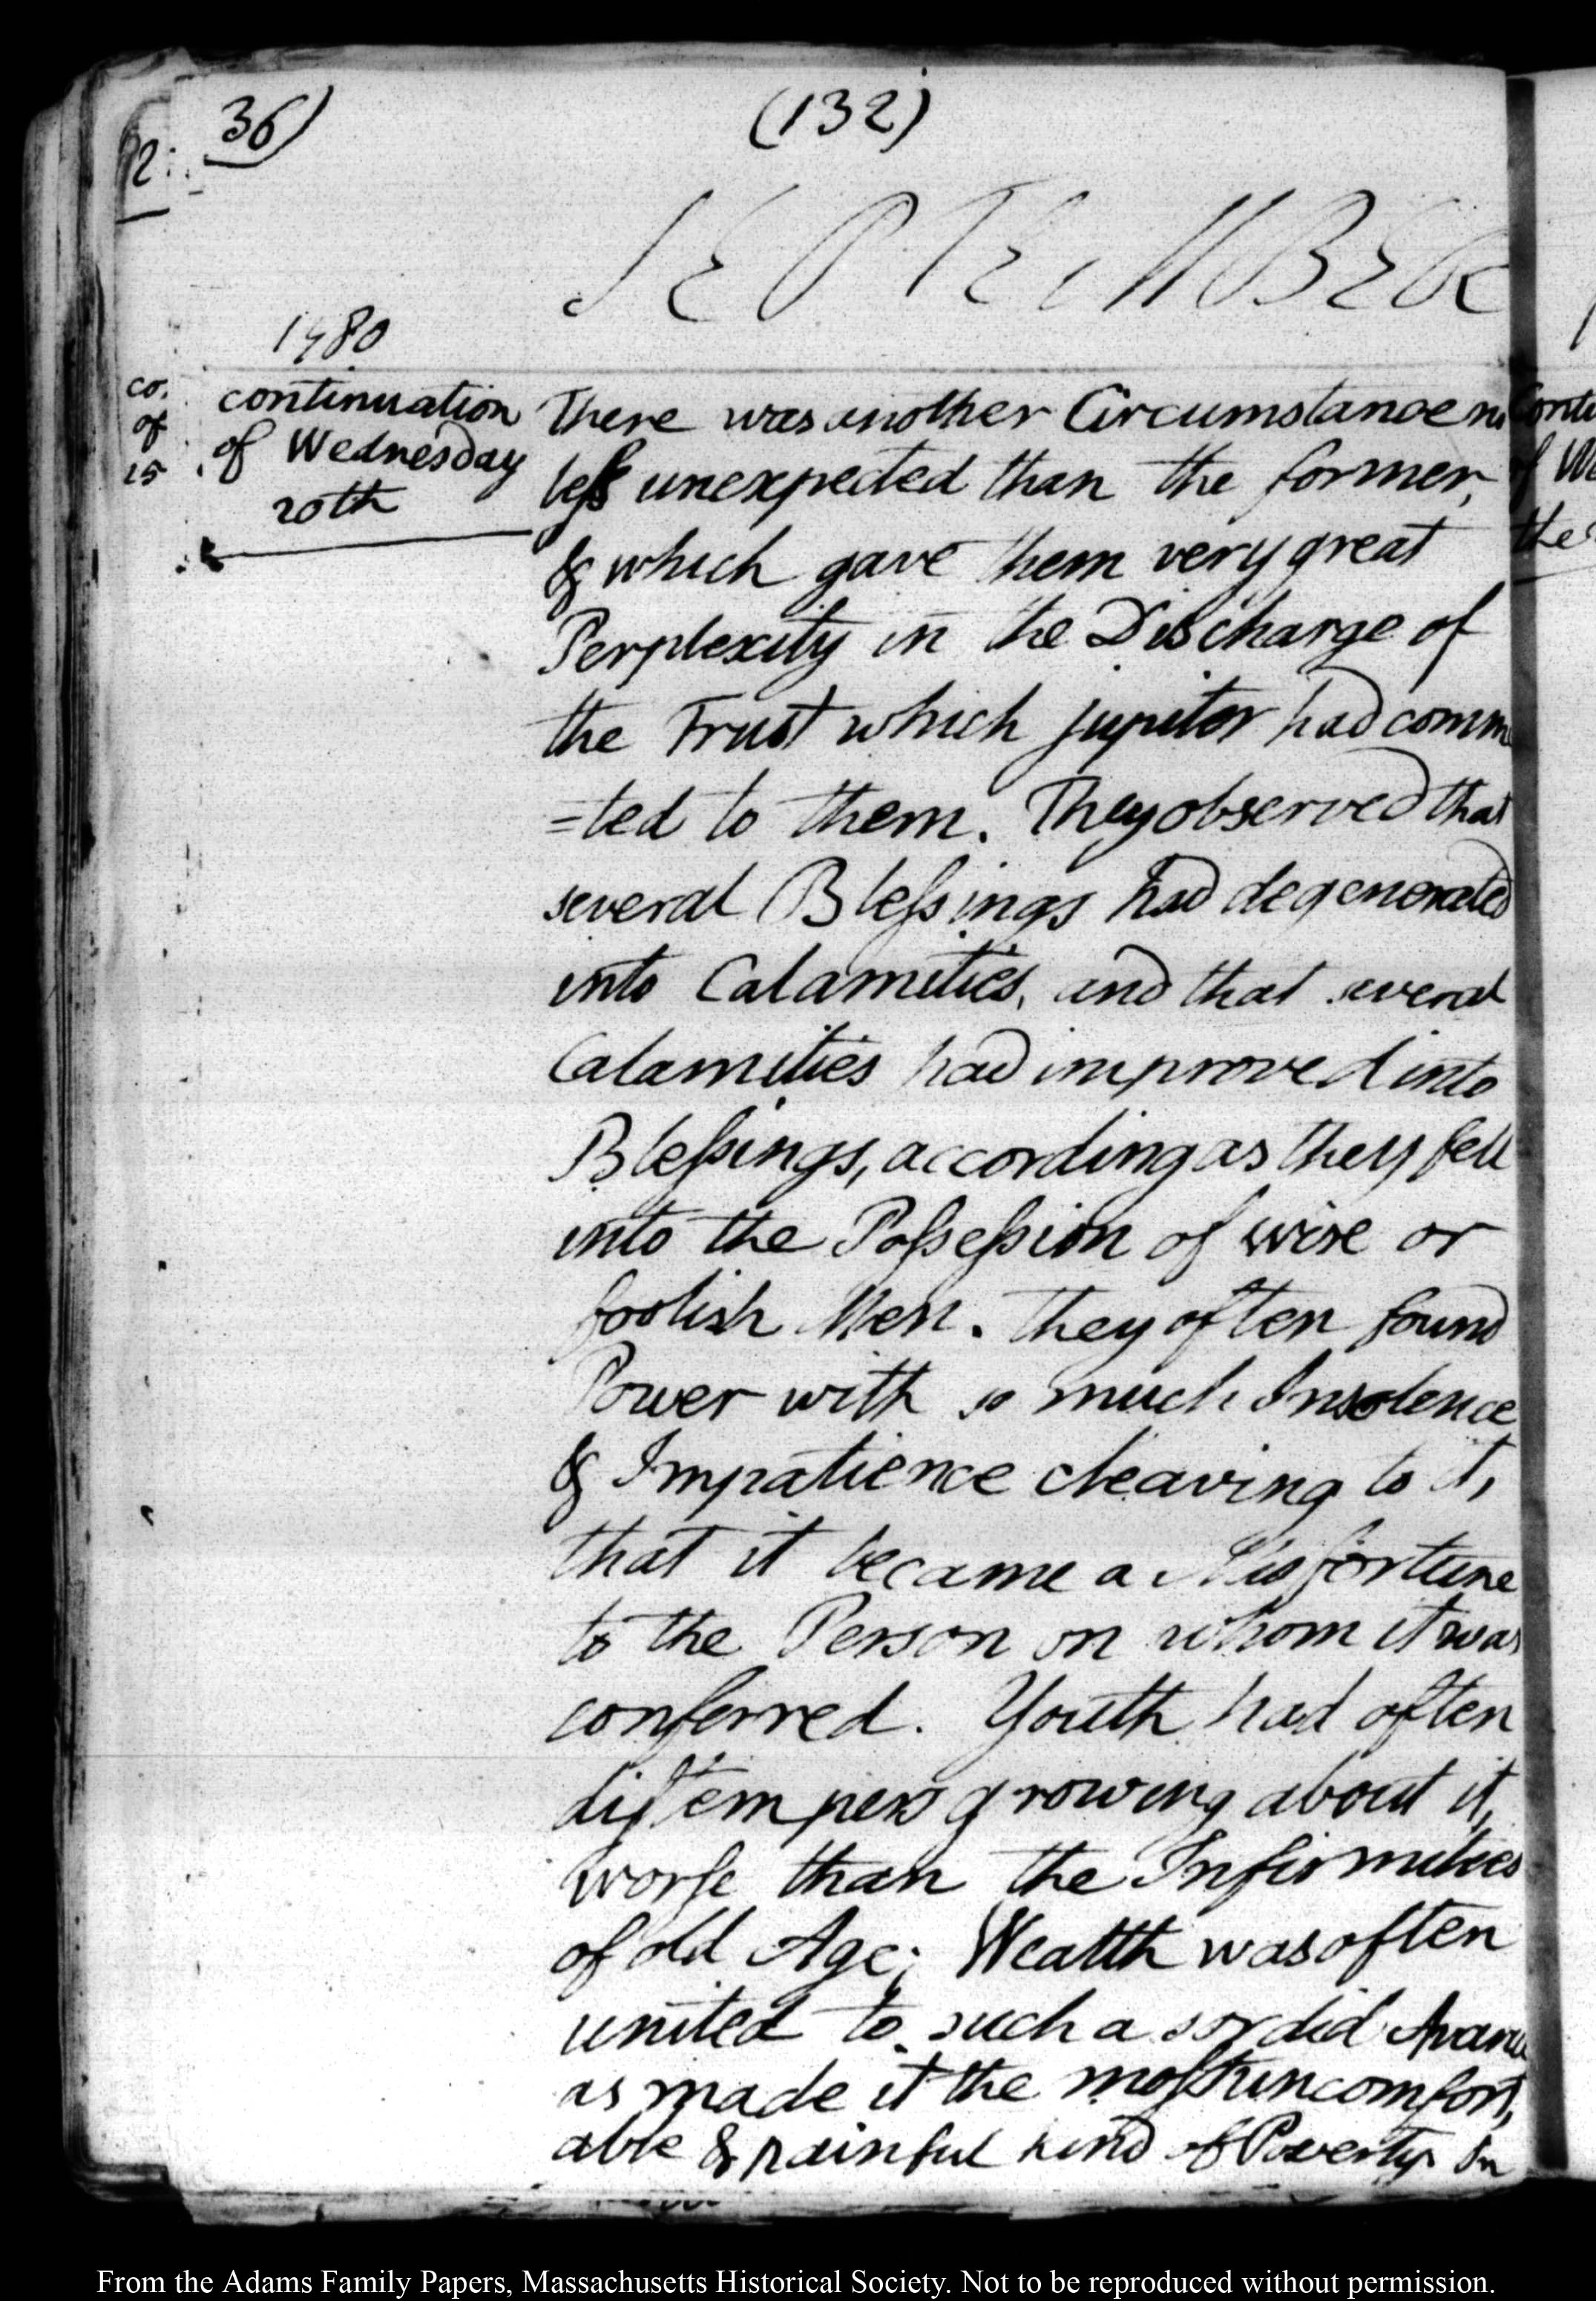 36)
(132)
2
SEPTEMBER
1780
co.
of
15
continuation
of Wednesday
20th
There was another Circumstance no
leſs unexpected than the former,
& which gave them very great
Perplexity in the Discharge of
the Trust which jupiter had comm
=ted to them. They observed that
several Bleſsings had degenerated
into Calamities, and that several
Calamities had improved into
Bleſsings, according as they fell
into the Poſseſsion of wise or
foolish Men. They often found
Power with so much Insolence
& Impatience cleaving to it,
that it became a Misfortune
to the Person on whom it was
conferred. Youth had often
diſtempers growing about it,
worſe than the Infirmities
of old Age; Wealth was often
united to such a sordid Avarice
as made it the moſt uncomfort,
able & painful kind of Poverty. In
Conti
of We
the
From the Adams Family Papers, Massachusetts Historical Society. Not to be reproduced without permission.